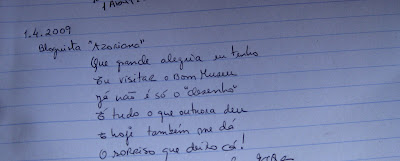 1.4.2009
Bloguista "Azoriana"
Que grande alegria eu tenho
Eu visitar o Bom Museu
Já não é só o "desenho"
É tudo o que outrora deu
E hoje também me dá
O sorriso que deixo cá!